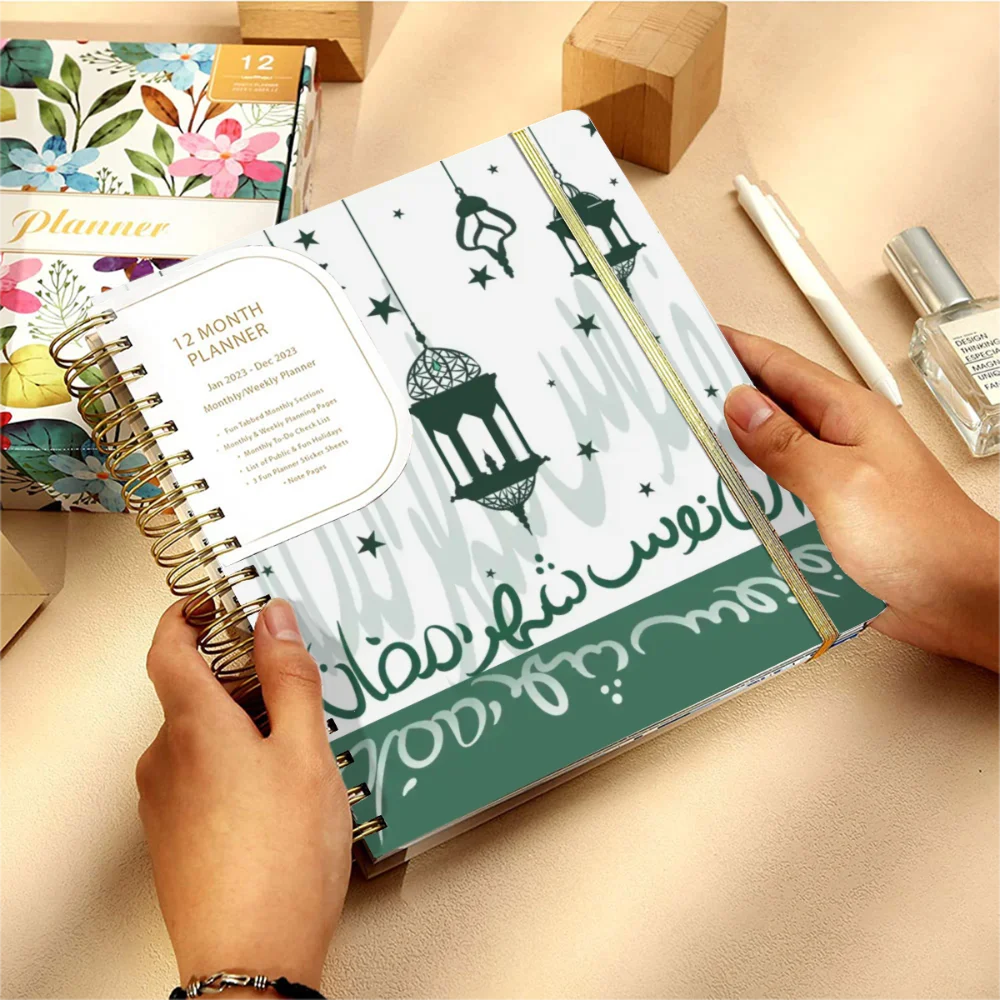 12
Planner
12 MONTH
PLANNER
Jan 2023 - Dec 2023
Monthly/Weekly Planner
• Fun Tabbed Monthly Sections
• Monthly & Weekly Planning Pages
• Monthly To-Do Check List
• List of Public & Fun Holidays
• 3 Fun Planner Sticker Sheets
• Note Pages
فانوس شهر رمضان
DESIGN
THINKING